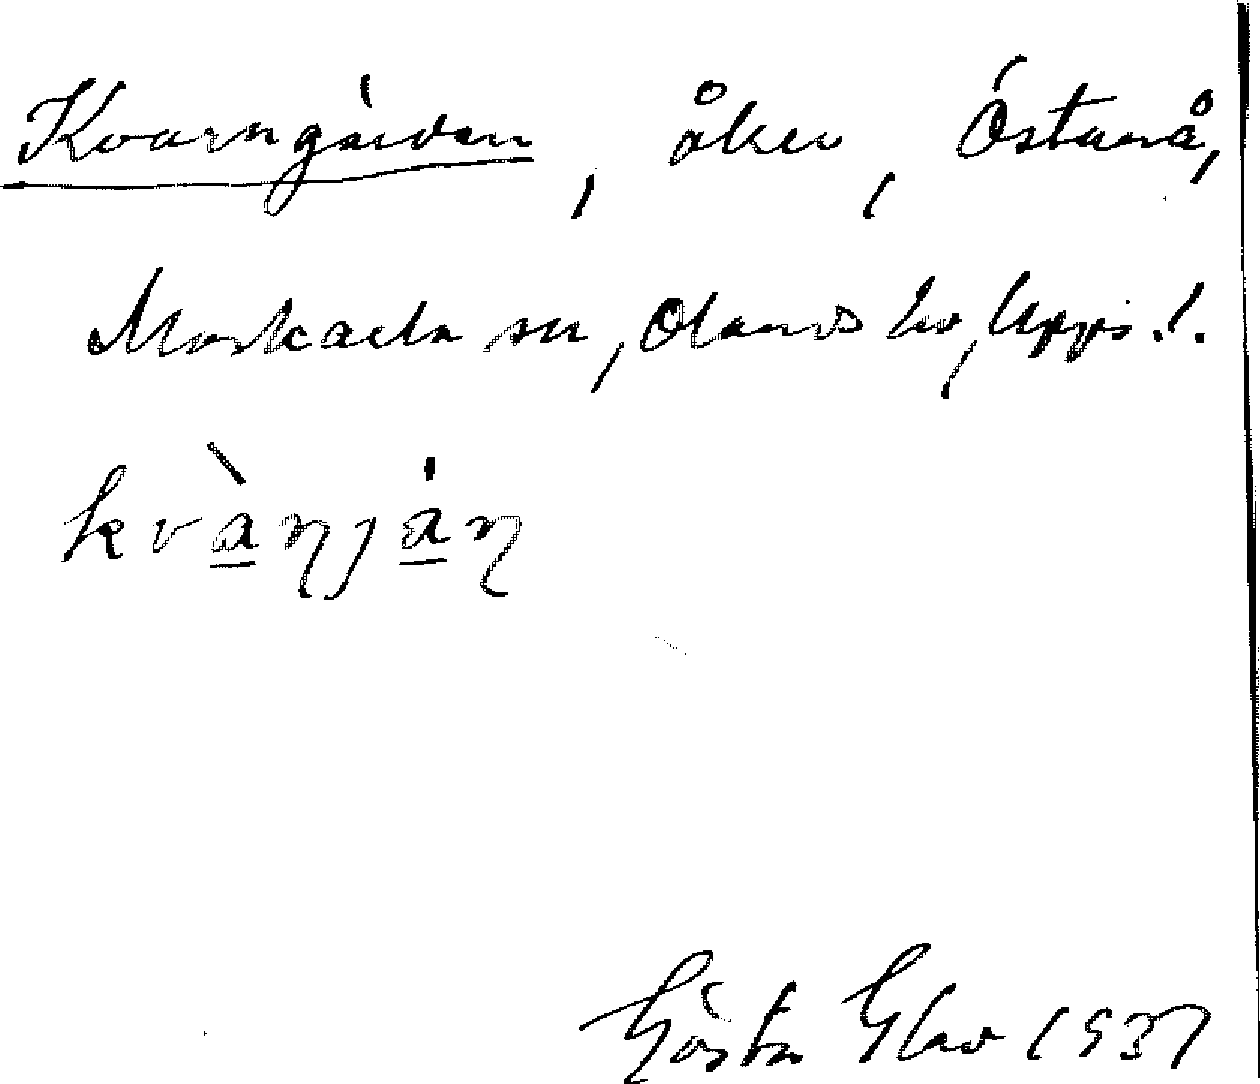 Kvarngärden, åker, Östanå,
Morkarla sn, Olands hd, Upps. l.
kvànján
Gösta 1937